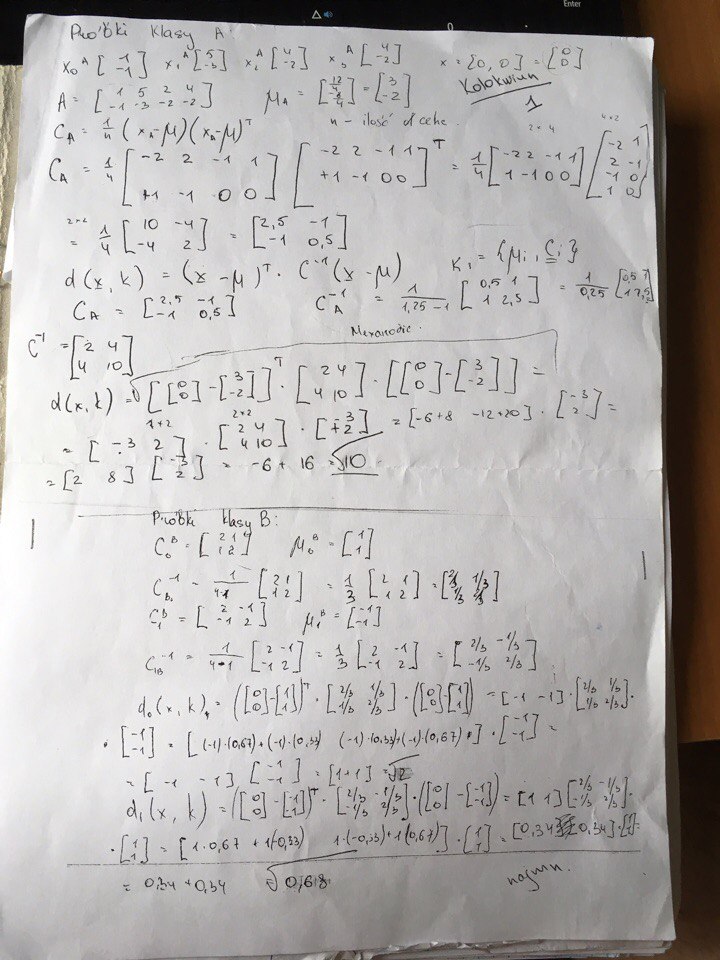 Enter
Próbki klasy A:
x₀ᴬ [1 -1] x₁ᴬ [5 -3] x₂ᴬ [4 -2] x₃ᴬ [4 -2] x = {0, 0} = [0 0]
Kolokwium
1
A = [1 5 2 4 -1 -3 -2 -2] μ_A = [12/4] = [3 -2]
C_A = 1/4 (x_A - μ)(x_A - μ)ᵀ n - ilość
2x4 4x2
C_A = 1/4 [-2 2 -1 1 +1 -1 0 0] [-2 2 -1 1 +1 -1 0 0]ᵀ = 1/4 [-2 2 -1 1 1 -1 0 0] [-2 1 2 -1 -1 0 1 0]
2x2
= 1/4 [10 -4 -4 2] = [2,5 -1 -1 0,5]
d(x, k) = (x - μ)ᵀ · C⁻¹ (x - μ) K₁ = {μi, Ci}
C_A = [2,5 -1 -1 0,5] C_A⁻¹ = 1/(1,25 - 1) [0,5 1 1 2,5] = 1/0,25 [0,5 1 1 2,5]
C⁻¹ = [2 4 4 10]
d(x, k) = √[[0 0] - [3 -2]]ᵀ · [2 4 4 10] · [[0 0] - [3 -2]] =
1x2 2x2
= [-3 2] · [2 4 4 10] · [-3 +2] = [-6+8 -12+20] · [-3 2] =
= [2 8] [-3 2] = -6 + 16 = √10
Próbki klasy B:
C₀ᴮ = [2 1 1 2] μ₀ᴮ = [1 1]
C_B₀⁻¹ = 1/(4-1) [2 1 1 2] = 1/3 [2 1 1 2] = [2/3 1/3 1/3 2/3]
C₁ᴮ = [2 -1 -1 2] μ₁ᴮ = [-1 -1]
C₁B⁻¹ = 1/(4-1) [2 -1 -1 2] = 1/3 [2 -1 -1 2] = [2/3 -1/3 -1/3 2/3]
d₀(x, k) = ([0 0] - [1 1])ᵀ · [2/3 1/3 1/3 2/3] · ([0 0] - [1 1]) = [-1 -1] · [2/3 1/3 1/3 2/3] ·
· [-1 -1] = [(-1)·(0,67)+(-1)·(0,33) (-1)·(0,33)+(-1)·(0,67)] · [-1 -1] =
= [-1 -1] [-1 -1] = [1+1] = √2
d₁(x, k) = ([0 0] - [-1 -1])ᵀ · [2/3 -1/3 -1/3 2/3] · ([0 0] - [-1 -1]) = [1 1] [2/3 -1/3 -1/3 2/3] ·
· [1 1] = [1·0,67 + 1(-0,33) 1·(-0,33)+1(0,67)] · [1 1] = [0,34 0,34] · [1 1] =
= 0,34 + 0,34 = √0,68